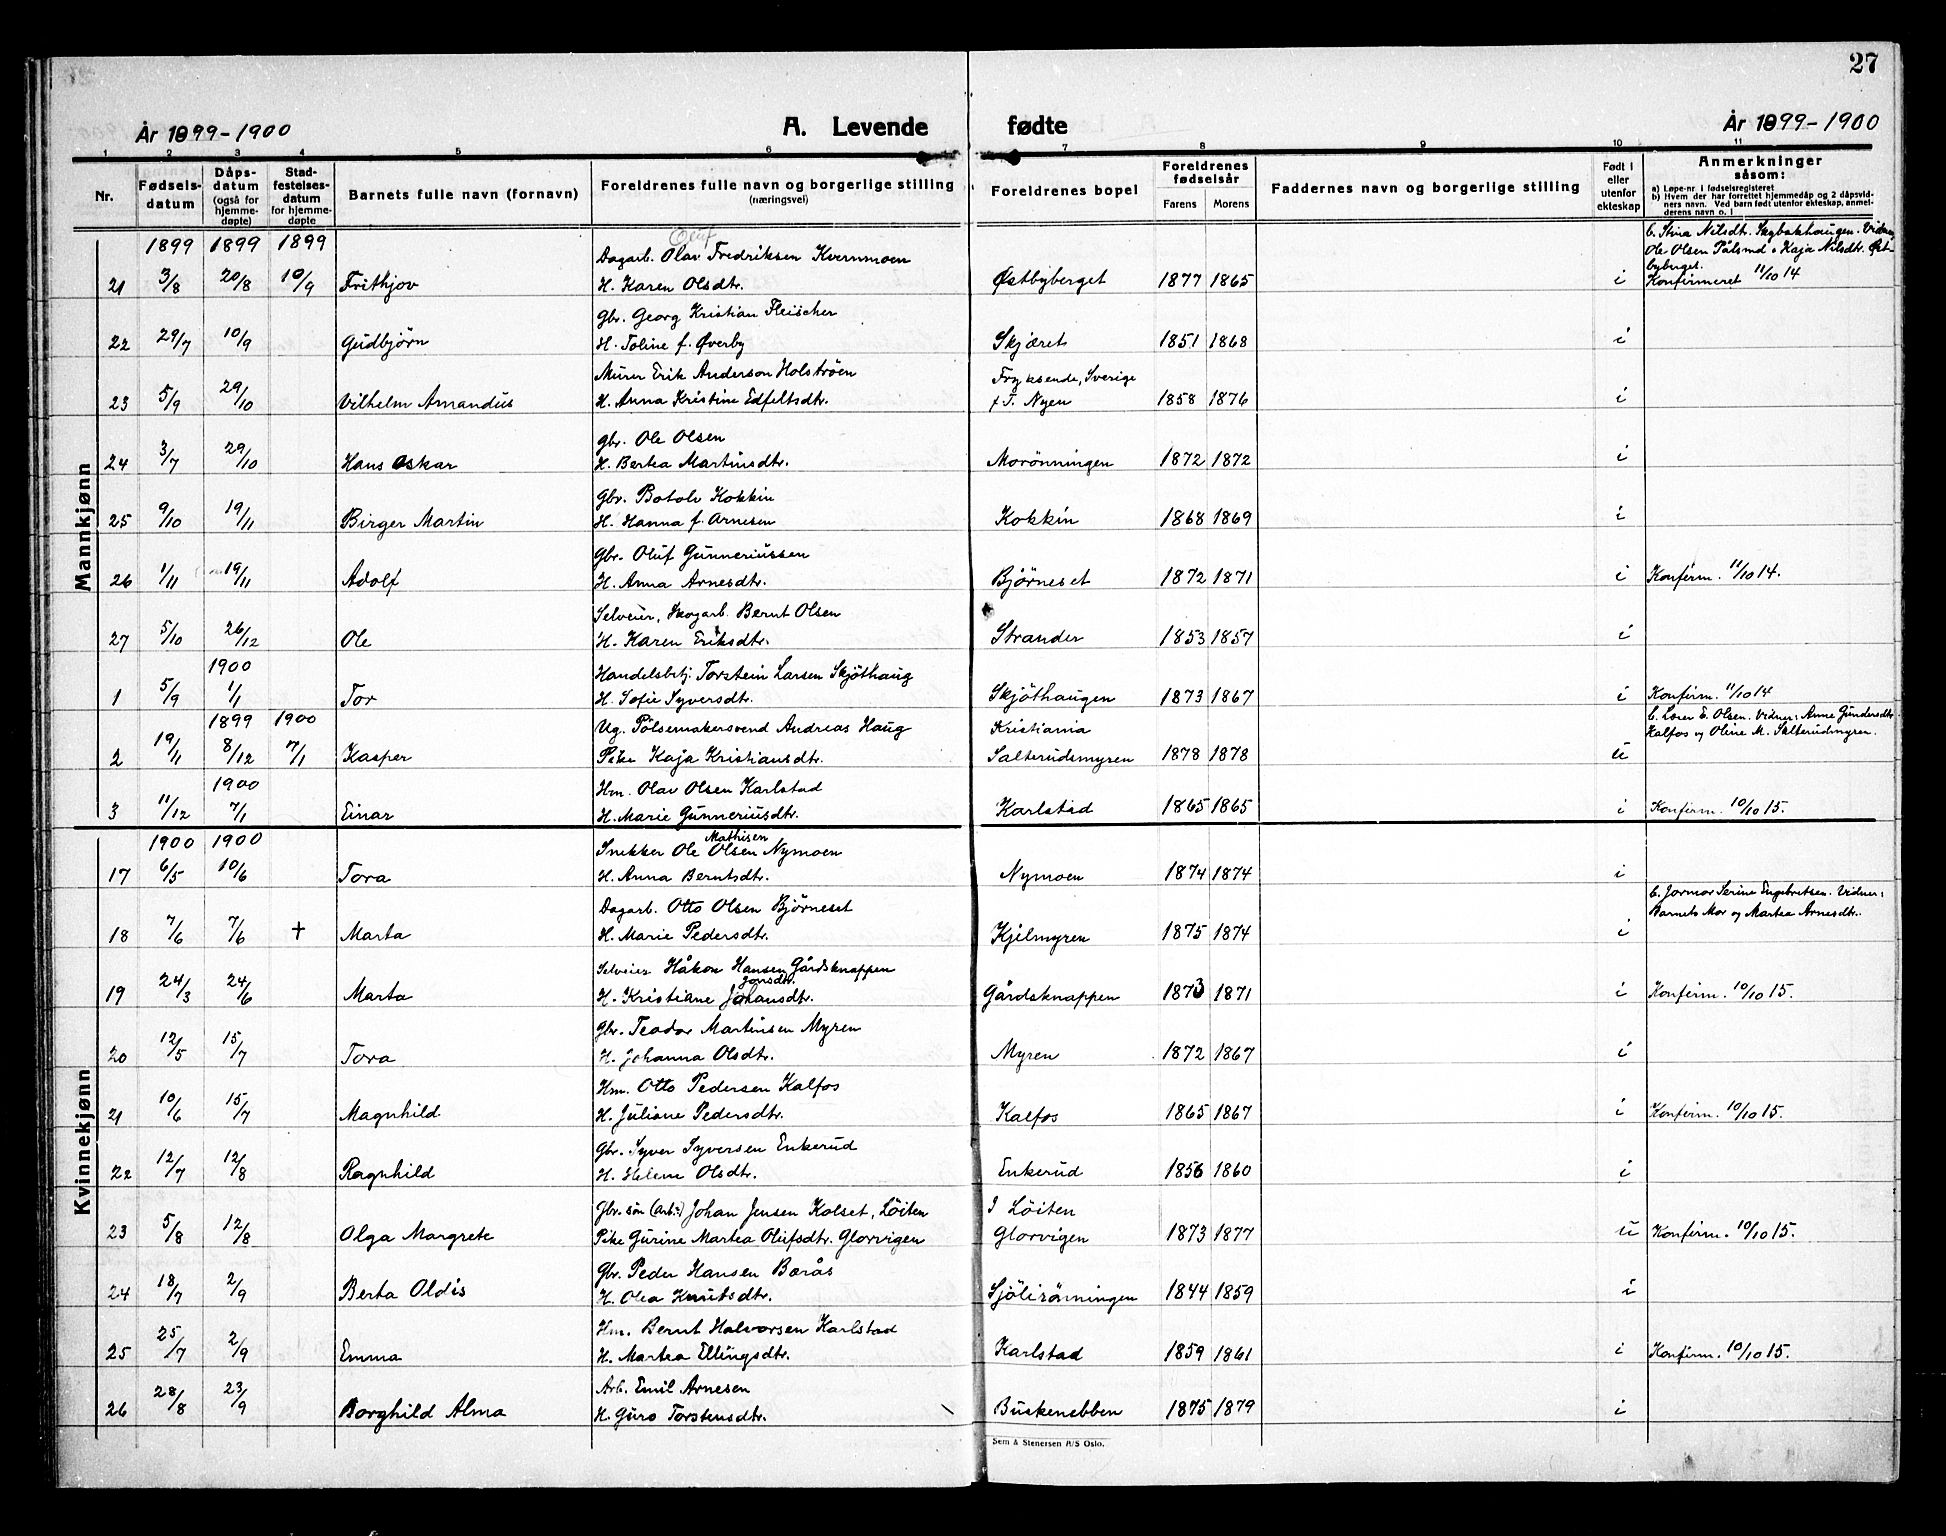 27
År 1899-1900 A. Levende fødte År 1899-1900
1 2 3 4 5 6 7 8 9 10 11
Nr. Fødselsdatum Dåpsdatum (også for hjemmedøpte) Stadfestelsesdatum for hjemmedøpte Barnets fulle navn (fornavn) Foreldrenes fulle navn og borgerlige stilling (næringsvei) Foreldrenes bopel Foreldrenes fødselsår Farens Morens Faddernes navn og borgerlige stilling Født i eller utenfor ekteskap Anmerkninger såsom:
a) Løpe-nr. i fødselsregisteret
b) Hvem der har forrettet hjemmedåp og 2 dåpsvidners navn. Ved barn født utenfor ekteskap, anmelderens navn o. l.
Mannkjønn
1899 1899 1899 Oluf b. Stina Nilsdt. Skybakhaugen. Vidner
Dagarb. Olav Fredriksen Kvernmoen Ole Olsen Pålsmd o Kaja Nilsdtr. Øst-
byberget.
21 3/8 20/8 10/9 Frithjov H. Karen Olsdtr. Østbyberget 1877 1865 i Konfirmeret 11/10 14
Gbr. Georg Kristian Fleischer
22 29/7 10/9 Gudbjørn H. Toline f. Øverby Skjæret 1851 1868 i
Murer Erik Anderson Holströen Fryksende, Sverige
23 5/9 29/10 Vilhelm Amandus H. Anna Kristine Edfeltsdtr. f.T. Nyen 1858 1876 i
Gbr. Ole Olsen
24 3/7 29/10 Hans Oskar H. Bertea Martinsdtr. Morönningen 1872 1872 i
Gbr. Botolv Kokkin
25 9/10 19/11 Birger Martin H. Hanna f. Arnesen Kokkin 1868 1869 i
Gbr. Oluf Gunneriussen
26 1/11 19/11 Adolf H. Anna Arnesdtr. Bjørneset 1872 1871 i Konfirm. 11/10 14.
Selveier, Skogarb. Bernt Olsen
27 5/10 26/12 Ole H. Karen Eriksdtr. Strander 1853 1857 i
1900 Handelsbtj. Torstein Larsen Skjöthaug
1 5/9 1/1 Tor H. Sofie Syversdtr. Skjöthaugen 1873 1867 i Konfirm. 11/10 14
1899 1900 Ug. Pölsemakersvend Andreas Haug Kristiania b. Lærer E. Olsen. Vidner: Anne Gundersdtr
Kalfos og Oline M. Salterudmyren.
2 19/1 8/12 7/1 Kasper Pike Kaja Kristiansdtr. Salterudsmyren 1878 1878 u
1900 Hm. Olav Olsen Karlstad
3 11/12 7/1 Einar H. Marie Gunneriusdtr. Karlstad 1865 1865 i Konfirm. 10/10 15.
Kvinnekjønn
1900 1900 Mathisen
Snekker Ole Olsen Nymoen
17 6/5 10/6 Tora H. Anna Berntsdtr. Nymoen 1874 1874 i
Dagarb. Otto Olsen Björneset b. Jormor Serine Engebretsen. Vidner:
Barnets Mor og Martea Arnesdtr.
18 7/6 7/6 + Marta H. Marie Pedersdtr. Kjilmyren 1875 1874 i
Selveier Håkon Hansen Gårdsknappen
Jonsdtr.
19 24/3 24/6 Marta H. Kristiane Johansdtr. Gårdsknappen 1873 1871 i Konfirm. 10/10 15.
Gbr. Teodor Martinsen Myren
20 12/5 15/7 Tora H. Johanna Olsdtr. Myren 1872 1867 i
Hm. Otto Pedersen Kalfos
21 10/6 15/7 Magnhild H. Juliane Pedersdtr. Kalfos 1865 1867 i Konfirm. 10/10 15.
Gbr. Syver Syversen Enkerud
22 12/7 12/8 Ragnhild H. Helene Olsdtr. Enkerud 1856 1860 i
Gbr. søn (Arb.) Johan Jensen Kolset, Löiten I Löiten
23 5/8 12/8 Olga Margrete Pike Gurine Martea Olufsdtr. Glorvigen Glorvigen 1873 1877 u Konfirm. 10/10 15.
Gbr. Peder Hansen Berås
24 18/7 2/9 Berta Oldis H. Olea Knutsdtr. Sjölirönningen 1844 1859 i
Hm. Bernt Halvorsen Karlstad
25 25/7 2/9 Emma H. Martea Ellingsdtr. Karlstad 1859 1861 i Konfirm. 10/10 15.
Arb. Emil Arnesen
26 28/8 23/9 Borghild Alma H. Guro Torstensdtr. Buskenebben 1875 1879 i
Sem & Stenersen A/S Oslo.